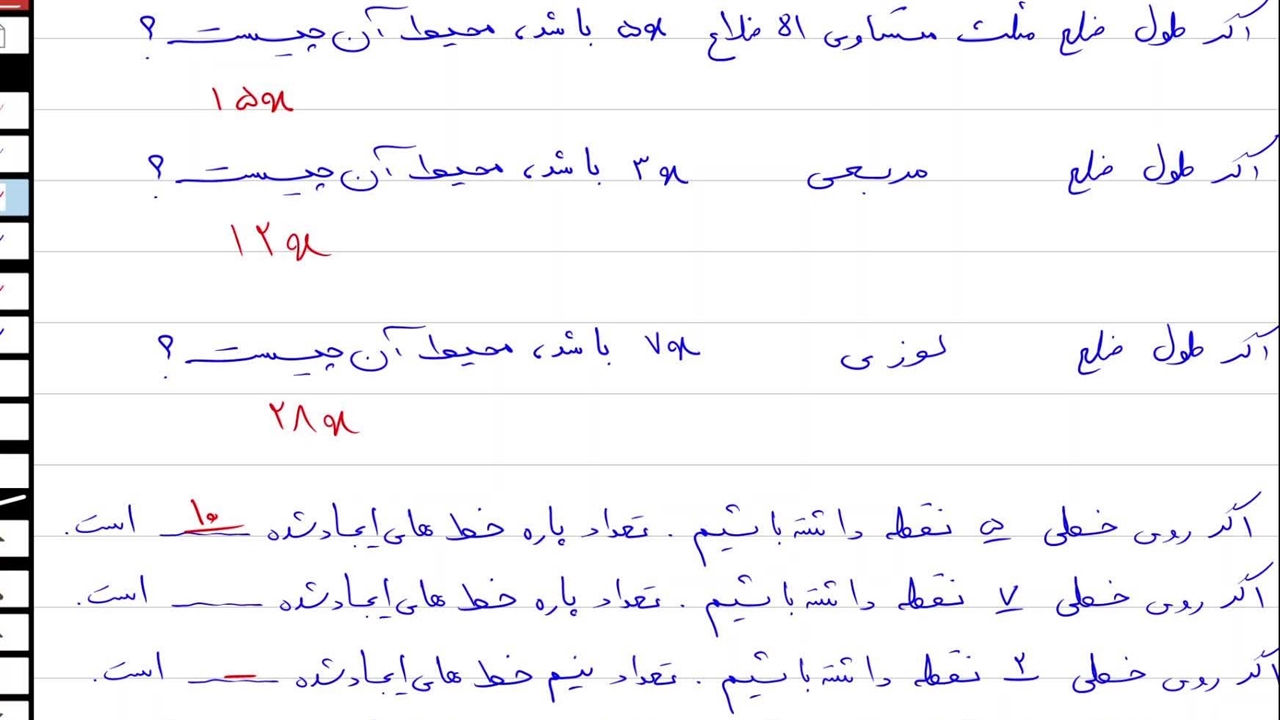 اگر طول ضلع مثلث متساوی الاضلاع 5x باشد، محیط آن چیست ؟
۱۵x
اگر طول ضلع مربعی ۳x باشد، محیط آن چیست ؟
۱۲x
اگر طول ضلع لوزی ۷x باشد، محیط آن چیست ؟
۲۸x
اگر روی خطی ۵ نقطه داشته باشیم . تعداد پاره خط های ایجاد شده ۱۰ است.
اگر روی خطی ۷ نقطه داشته باشیم . تعداد پاره خط های ایجاد شده ___ است.
اگر روی خطی ۲ نقطه داشته باشیم . تعداد نیم خط های ایجاد شده ___ است.